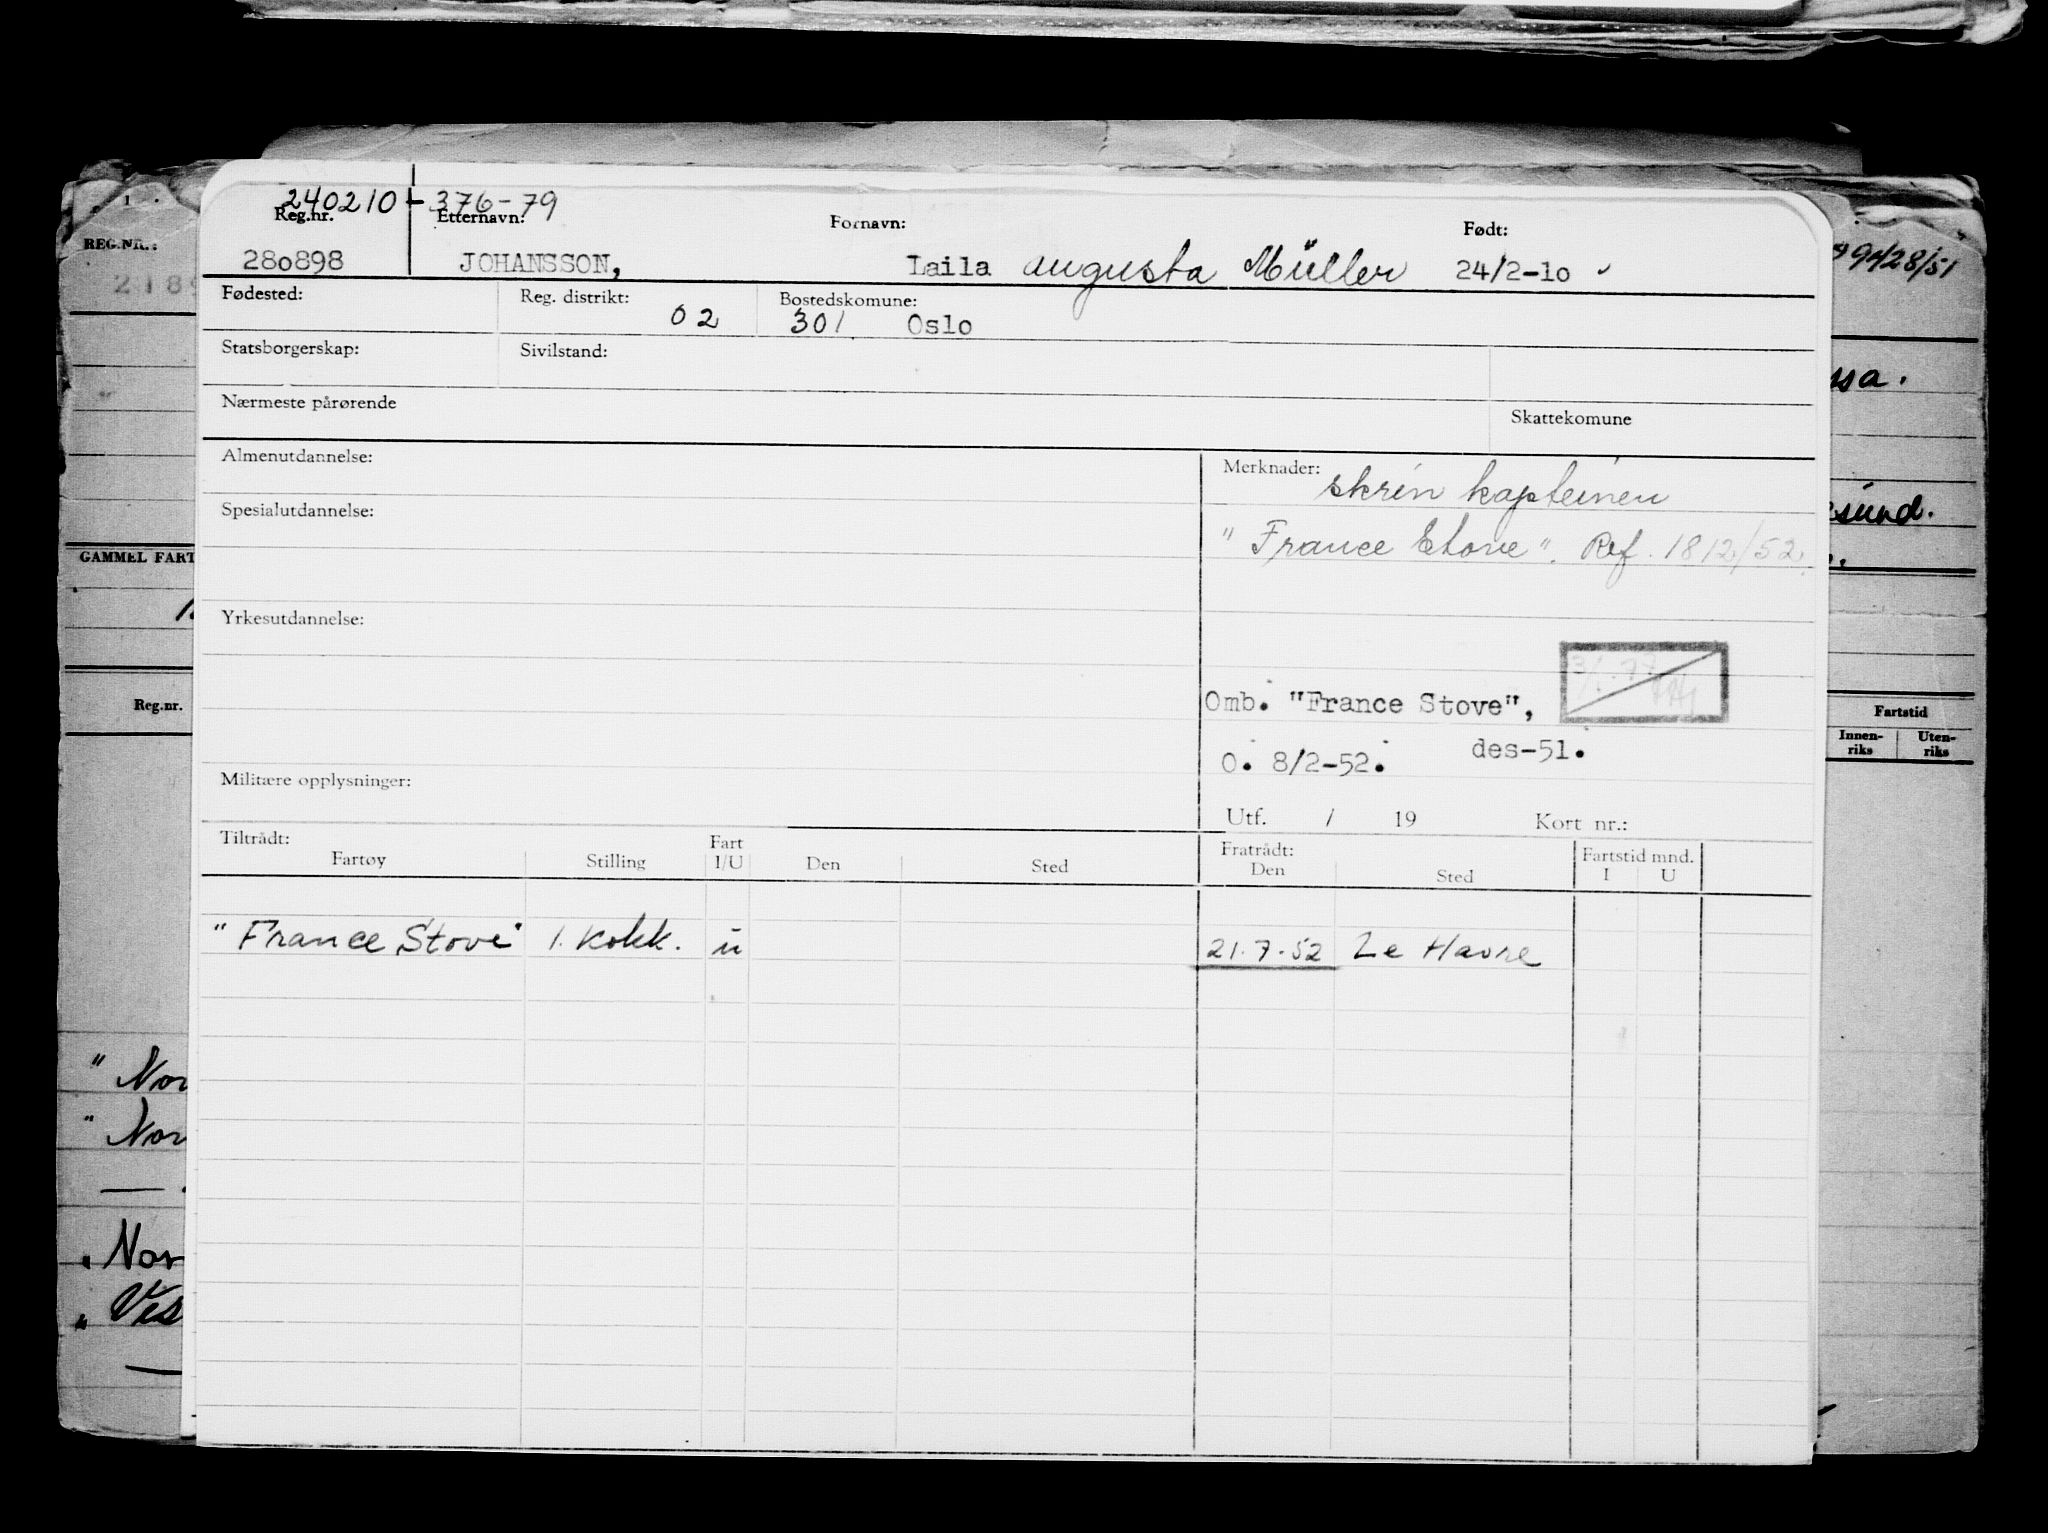 240210-376-79
Reg.nr. Etternavn: Fornavn: Født:
280898 JOHANSSON, Laila Augusta Müller 24/2-10
Fødested: Reg. distrikt: 02 Bostedskomune: 301 Oslo
Statsborgerskap: Sivilstand:
Nærmeste pårørende Skattekomune
Almenutdannelse: Merknader: skrin kapteinen
Spesialutdannelse: "France Stove". Ref. 1812/52
Yrkesutdannelse:
Omb. "France Stove",
des-51.
O. 8/2-52.
Militære opplysninger:
Utf. / 19 Kort nr.:
Tiltrådt: Fratrådt:
Fartøy Stilling Fart I/U Den Sted Den Sted Fartstid mnd. I U
"France Stove" 1. kokk. u 21.7.52 Le Havre
1
REG.NR.:
GAMMEL FART
Reg.nr.
" Nor
" Nor
" Nor
" Ves
99428/51
ssa.
esund.
Fartstid
Innen-riks Uten-riks